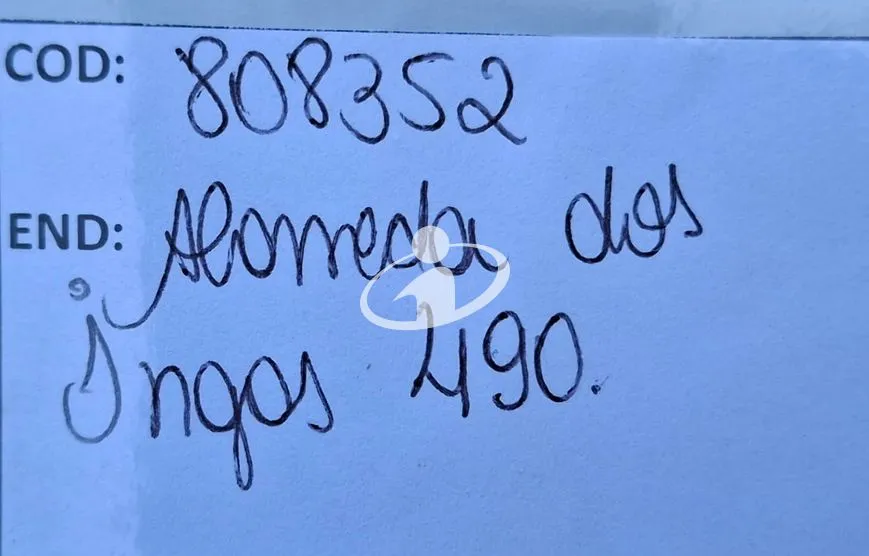 COD: 808352
END: Alameda dos
Ingas 490.